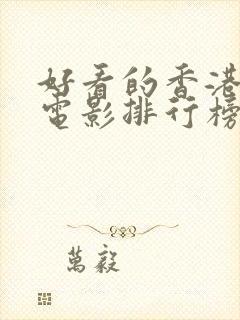 好看的香港
电影排行榜
萬毅